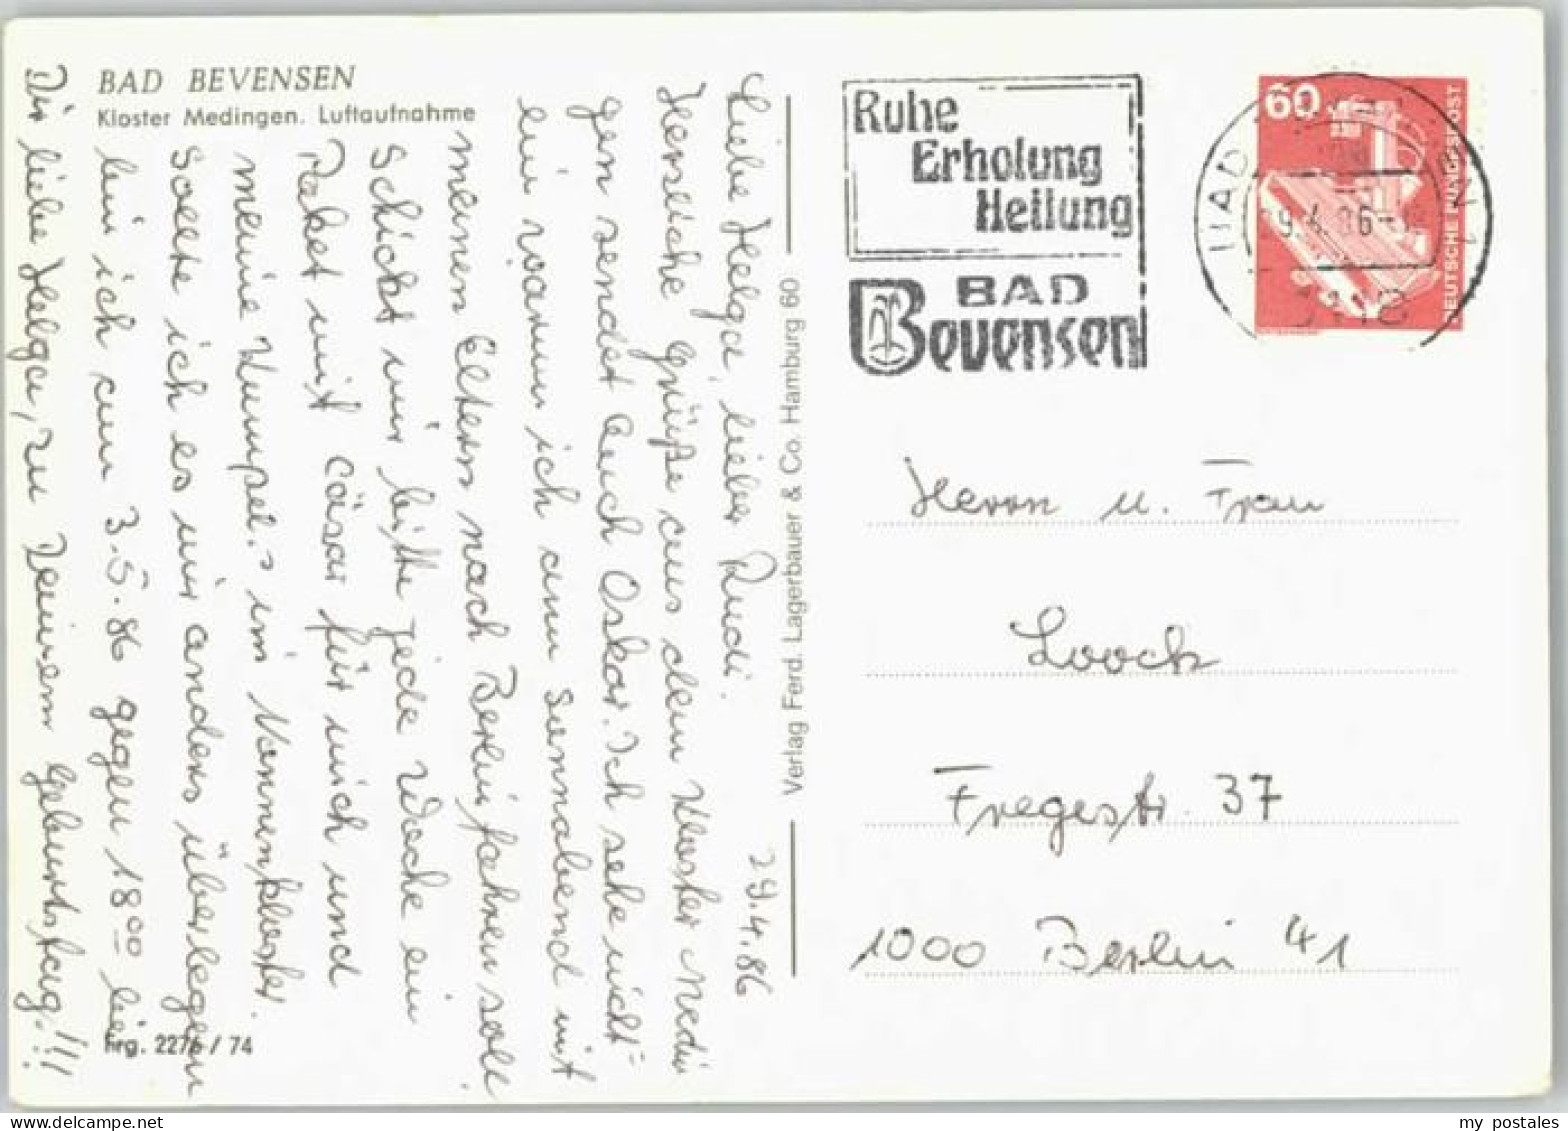 BAD BEVENSEN
Kloster Medingen. Luftaufnahme
29.4.86
Liebe Helga, lieber Rudi.
Herzliche Grüße aus dem Kloster Medin
gen sendet Euch Oskar. Ich sehe nicht=
ein warum ich am Sonnabend mit
meinen Eltern nach Berlin fahren soll.
Schickt mir bitte jede Woche ein
Paket mit Cäsar für mich und
meine Kumpel.s im Nonnenkloster.
Sollte ich es mir anders überlegen
bin ich am 3.5.86 gegen 18⁰⁰ hier
Dir liebe Helga, zu Deinem Geburtstag!!!
hrg. 2276 / 74
Verlag Ferd. Lagerbauer & Co. Hamburg 60
Ruhe
Erholung
Heilung
BAD
Bevensen
60
DEUTSCHE BUNDESPOST
Herrn u. Frau
Loock
Fregestr. 37
1000 Berlin 41
my postales